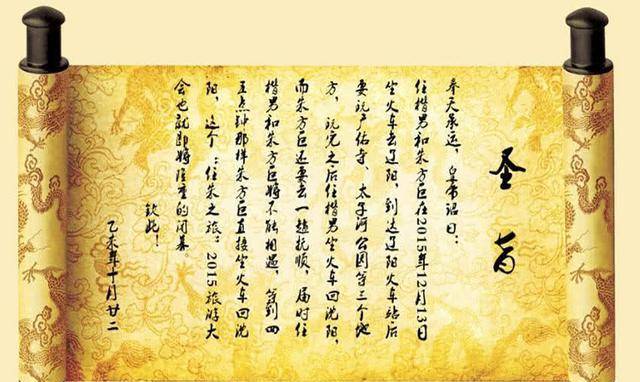 圣旨
奉天承运,皇帝诏曰:
任楷男和朱方巨在2015年12月13日
坐火车去辽阳,到达辽阳火车站后
要玩广佑寺、太子河公园等三个地
方,玩完之后任楷男坐火车回沈阳,
而朱方巨还要去一趟抚顺,届时任
楷男和朱方巨将不能相遇,等到四
五点钟那样朱方巨直接坐火车回沈
阳,这个:任朱之旅:2015旅游大
会也就即将隆重的闭幕。
钦此!
乙未年十月廿二